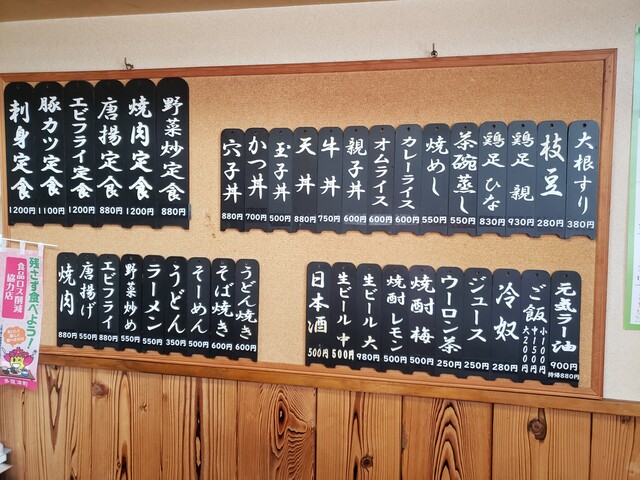 野菜炒定食 880円
焼肉定食 1200円
唐揚定食 880円
エビフライ定食 1200円
豚カツ定食 1100円
刺身定食 1200円
大根すり 380円
枝豆 280円
鶏足 親 930円
鶏足 ひな 830円
茶碗蒸し 550円
焼めし 550円
カレーライス 600円
オムライス 600円
親子丼 600円
牛丼 750円
天丼 880円
玉子丼 500円
かつ丼 700円
穴子丼 880円
うどん焼き 600円
そば焼き 600円
そーめん 500円
うどん 350円
ラーメン 550円
野菜炒め 550円
エビフライ 880円
唐揚げ 550円
焼肉 880円
元気ラー油 900円
特価880円
ご飯 小100円
中150円
大200円
冷奴 280円
ジュース 250円
ウーロン茶 250円
焼酎 梅 500円
焼酎 レモン 500円
生ビール 大 980円
生ビール 中 500円
日本酒 500円
残さず食べよう!
食品ロス削減
協力店
多度津町